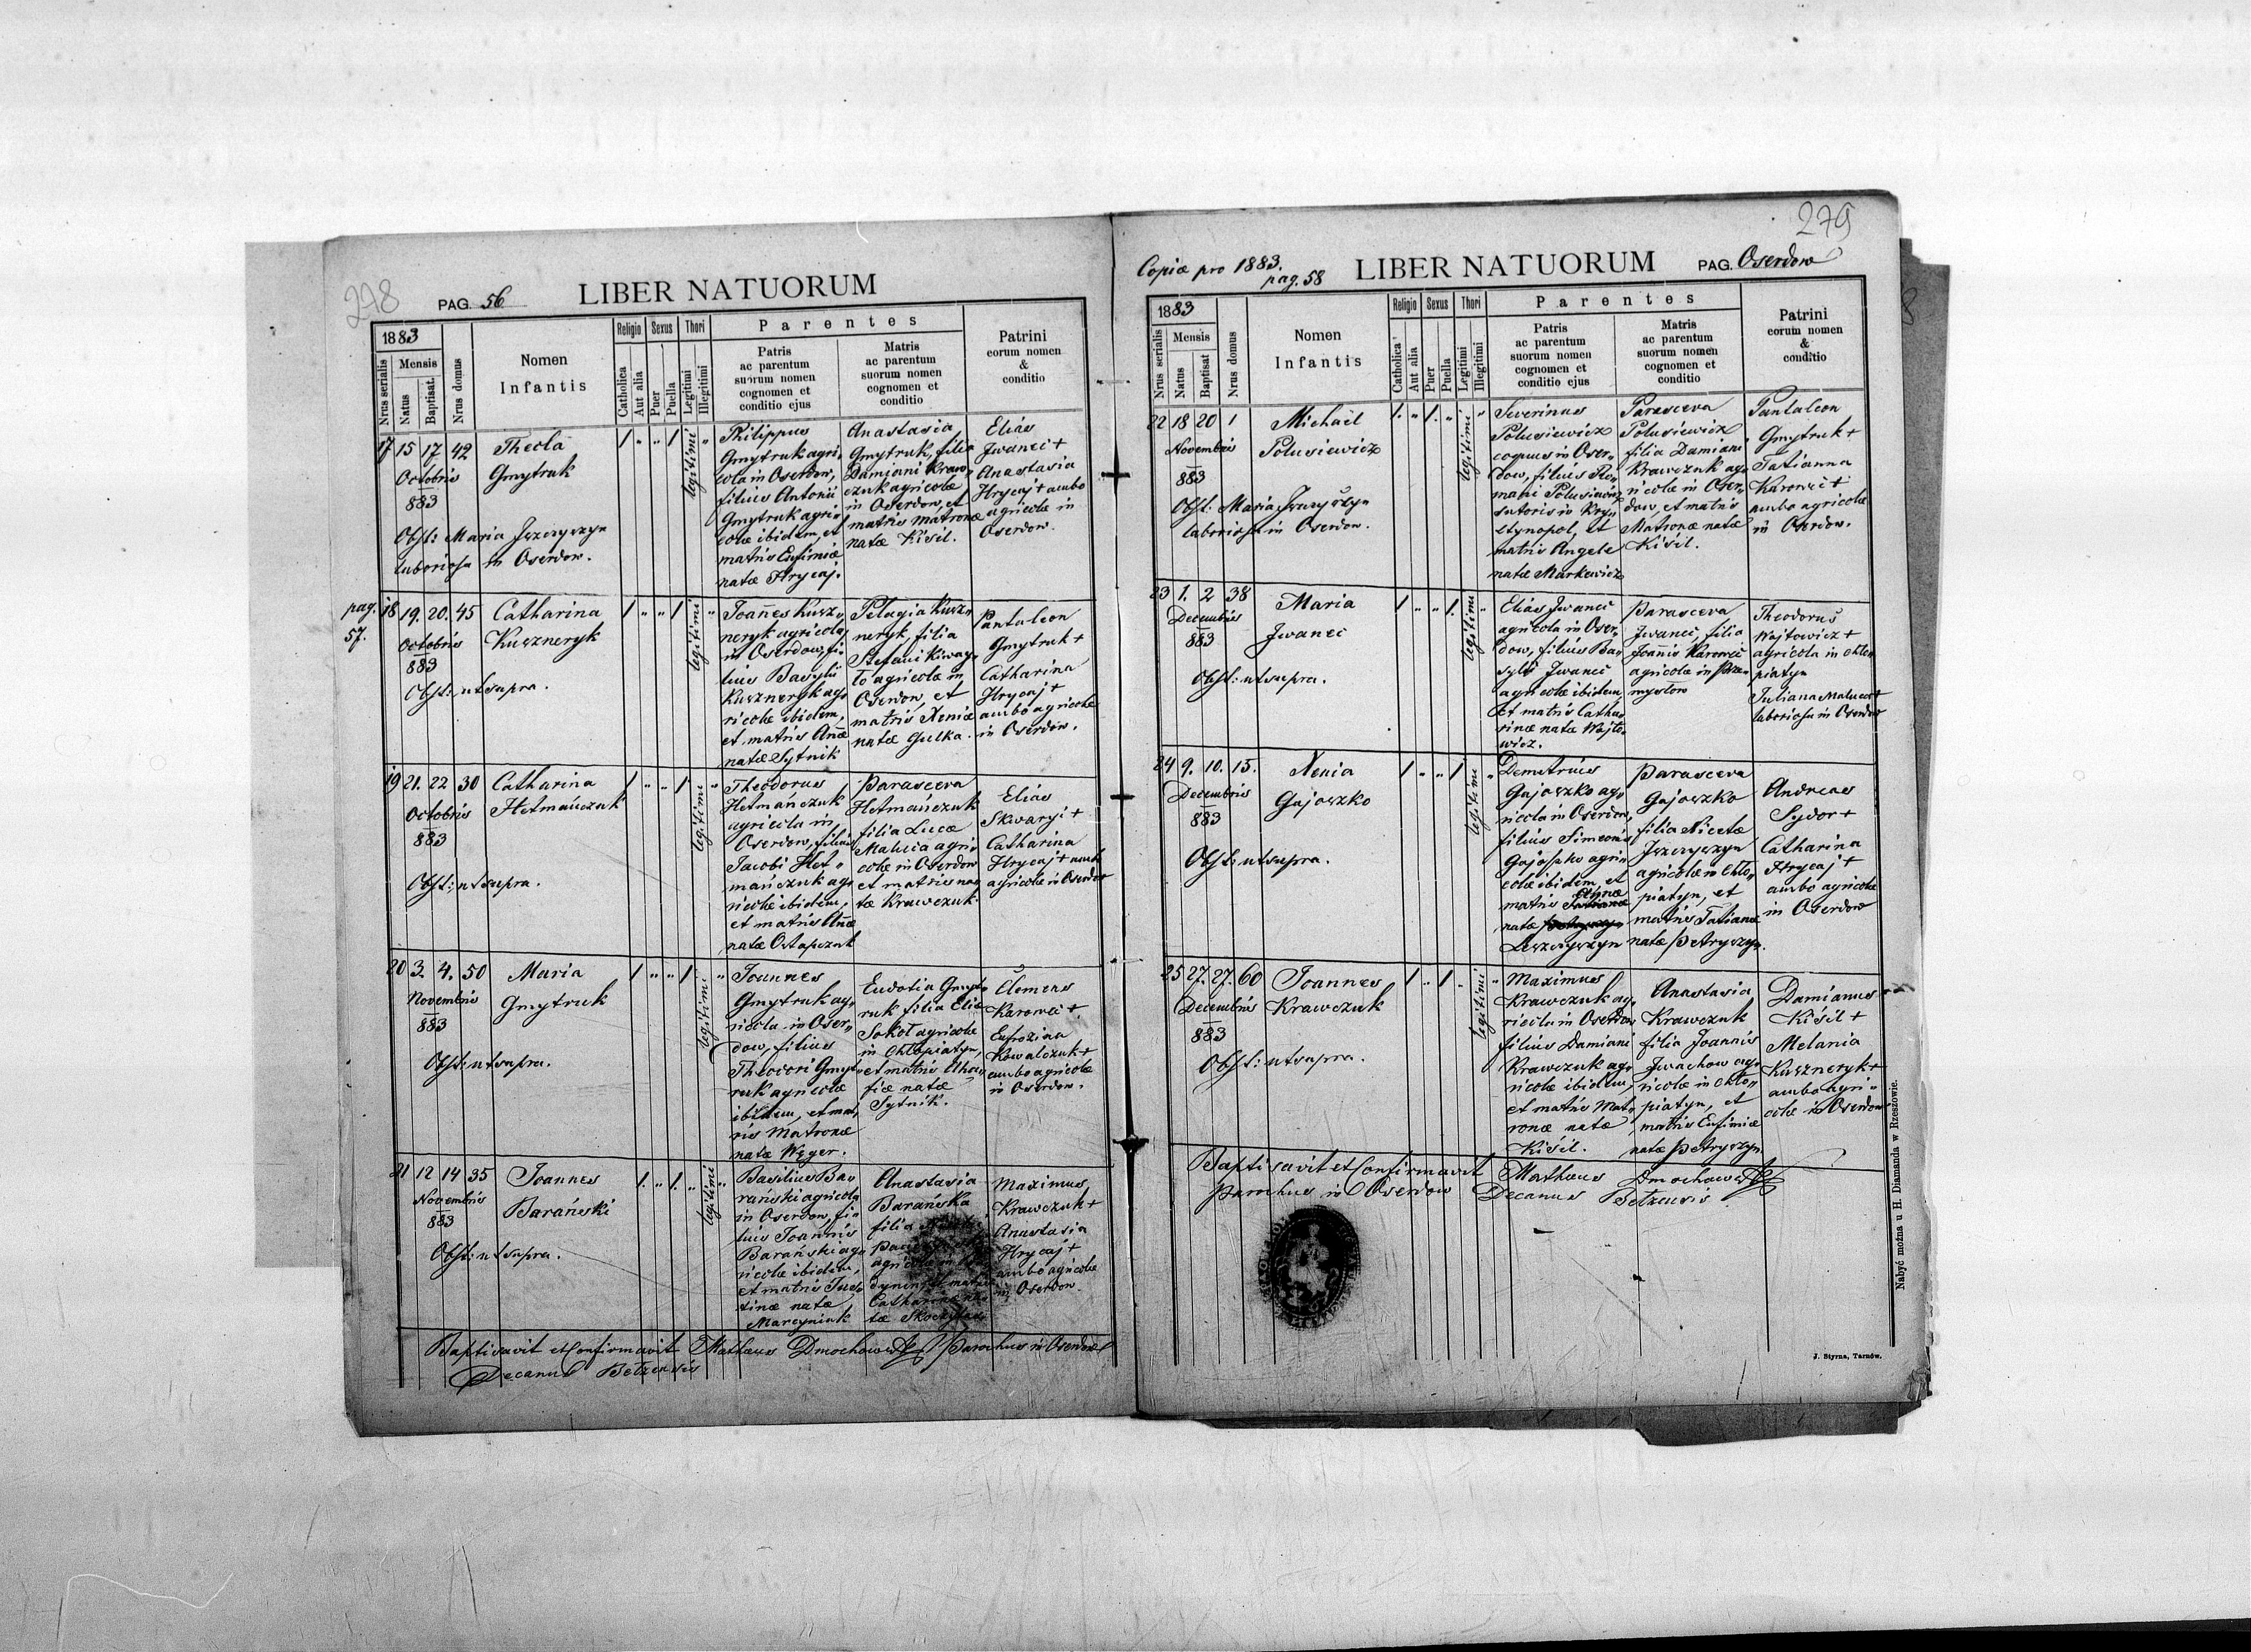 278
PAG. 56
LIBER NATUORUM
1883
Nrus serialis
Mensis
Natus
Baptisat.
Nrus domus
Nomen
Infantis
Religio
Catholica
Aut alia
Sexus
Puer
Puella
Thori
Legitimi
Illegitimi
Parentes
Patris
ac parentum
suorum nomen
cognomen et
conditio ejus
Matris
ac parentum
suorum nomen
cognomen et
conditio
Patrini
eorum nomen
&
conditio
17 15 17 42
Octobris
883
Thecla
Gmytruk
Obst: Maria
laboriosa in Oserdow.
1 " " 1 legitimi "
Philippus
Gmytruk agri„
cola in Oserdow,
filius Antonii
Gmytruk agri„
colæ ibidem, et
matris Eufimiæ
natæ Hrycaj.
Anastasia
Gmytruk, filia
Damiani Kraw„
czuk agricolæ
in Oserdow, et
matris Matronæ
natæ Kisil.
Elias
Jwanci +
Anastasia
Hrycaj + ambo
agricolæ in
Oserdow.
pag.
57.
18 19. 20. 45
Octobris
883
Catharina
Kuszneryk
Obst: ut supra.
1 " " 1 legitimi "
Joannes Kusz„
neryk agricola
in Oserdow, fi„
lius Basylii
Kuszneryk ag„
ricolæ ibidem,
et matris Annæ
natæ Sytnik
Pelagia Kusz„
neryk, filia
Stefani
agricolæ in
Oserdow, et
matris Xeniæ
natæ Gulka.
Pantaleon
Gmytruk +
Catharina
Hrycaj +
ambo agricolæ
in Oserdow.
19 21. 22 30
Octobris
883
Catharina
Hetmańczuk
Obst: ut supra.
1 " " 1 legitimi "
Theodorus
Hetmańczuk
agricola in
Oserdow, filius
Jacobi Het„
mańczuk ag„
ricolæ ibidem,
et matris Annæ
natæ Ostapczuk
Parasceva
Hetmańczuk
filia Lucæ
agri„
colæ in Oserdow
et matris na„
tæ Krawczuk.
Elias
Skwaryi +
Catharina
Hrycaj + ambo
agricolæ in Oserdow
20 3. 4. 50
Novembris
883
Maria
Gmytruk
Obst: ut supra.
1 " " 1 legitimi "
Joannes
Gmytruk ag„
ricola in Oser„
dow, filius
Theodori Gmyt„
ruk agricolæ
ibidem, et mat„
ris Matronæ
natæ Węger.
Eudotia Gmyt„
ruk filia Eliæ
Sokoł agricolæ
in Chłopiatyn,
et matris
natæ
Sytnik.
Clemens
Karowci +
Eufrozina
Kowalczuk +
ambo agricolæ
in Oserdow.
21 12 14 35
Novembris
883
Joannes
Barański
Obst: ut supra.
1. " 1. " legitimi "
Basilius Ba„
rański agricola
in Oserdow, fi„
lius Joannis
Barański ag„
ricolæ ibidem,
et matris Jus„
tinæ natæ
Marcyniuk
Anastasia
Barańska
filia
agricolæ in
Catharinæ na„
tæ
Maximus
Krawczuk +
Anastasia
Hrycaj +
ambo agricolæ
in Oserdow.
Baptisavit et Confirmavit Mathæus Dmochowski Parochus in Oserdow
Decanus Bełzensis
279
Copiæ pro 1883.
pag. 58
LIBER NATUORUM
PAG. Oserdow
1883
Nrus serialis
Mensis
Natus
Baptisat
Nrus domus
Nomen
Infantis
Religio
Catholica
Aut alia
Sexus
Puer
Puella
Thori
Legitimi
Illegitimi
Parentes
Patris
ac parentum
suorum nomen
cognomen et
conditio ejus
Matris
ac parentum
suorum nomen
cognomen et
conditio
Patrini
eorum nomen
&
conditio
22 18 20 1
Novembris
883
Michael
Polusiewicz
Obst: Maria
laboriosa in Oserdow.
1. " 1. " legitimi "
Severinus
Polusiewicz
in Oser„
dow, filius Ro„
mani Polusiewicz
sutoris in Kry„
stynopol, et
matris Angelæ
natæ Markewicz
Parasceva
Polusiewicz
filia Damiani
Krawczuk ag„
ricolæ in Oser„
dow, et matris
Matronæ natæ
Kisil.
Pantaleon
Gmytruk +
Tatianna
Karowci +
ambo agricolæ
in Oserdow.
23 1. 2 38
Decembris
883
Maria
Jwanci
Obst: ut supra.
1 " " 1. legitimi "
Elias Jwanci
agricola in Oser„
dow, filius Ba„
sylii Jwanci
agricolæ ibidem,
et matris Catha„
rinæ natæ Wojto„
wicz.
Parasceva
Jwanci, filia
Joannis Karowci
agricolæ in Prze„
mysłow
Theodorus
Wojtowicz +
agricola in Chło„
piatyn
Juliana
laboriosa in Oserdow
24 9. 10. 15.
Decembris
883
Xenia
Gajoszko
Obst: ut supra.
1 " " 1 legitimi "
Demetrius
Gajoszko ag„
ricola in Oserdow,
filius Simeonis
Gajoszko agri„
colæ ibidem, et
matris
natæ
Parasceva
Gajoszko
filia Nicetæ
agricolæ in Chło„
piatyn, et
matris Tatianæ
natæ Petryszyn.
Andreas
Sydor +
Catharina
Hrycaj +
ambo agricolæ
in Oserdow
25 27. 27. 60
Decembris
883
Joannes
Krawczuk
Obst: ut supra.
1 " 1 " legitimi "
Maximus
Krawczuk ag„
ricola in Oserdow
filius Damiani
Krawczuk ag„
ricolæ ibidem,
et matris Mat„
ronæ natæ
Kisil.
Anastasia
Krawczuk
filia Joannis
Jwachow ag„
ricolæ in Chło„
piatyn, et
matris Eufimiæ
natæ Petryszyn
Damianus
Kisil +
Melania
Kuszneryk +
ambo agri„
colæ in Oserdow
Baptisavit et Confirmavit Mathæus Dmochowski
Parochus in Oserdow Decanus Bełzensis.
Nabyć można u H. Diamanda w Rzeszowie.
J. Styrna, Tarnów.